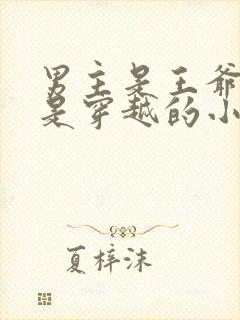 男主是王爷
是穿越的小
夏梓沫